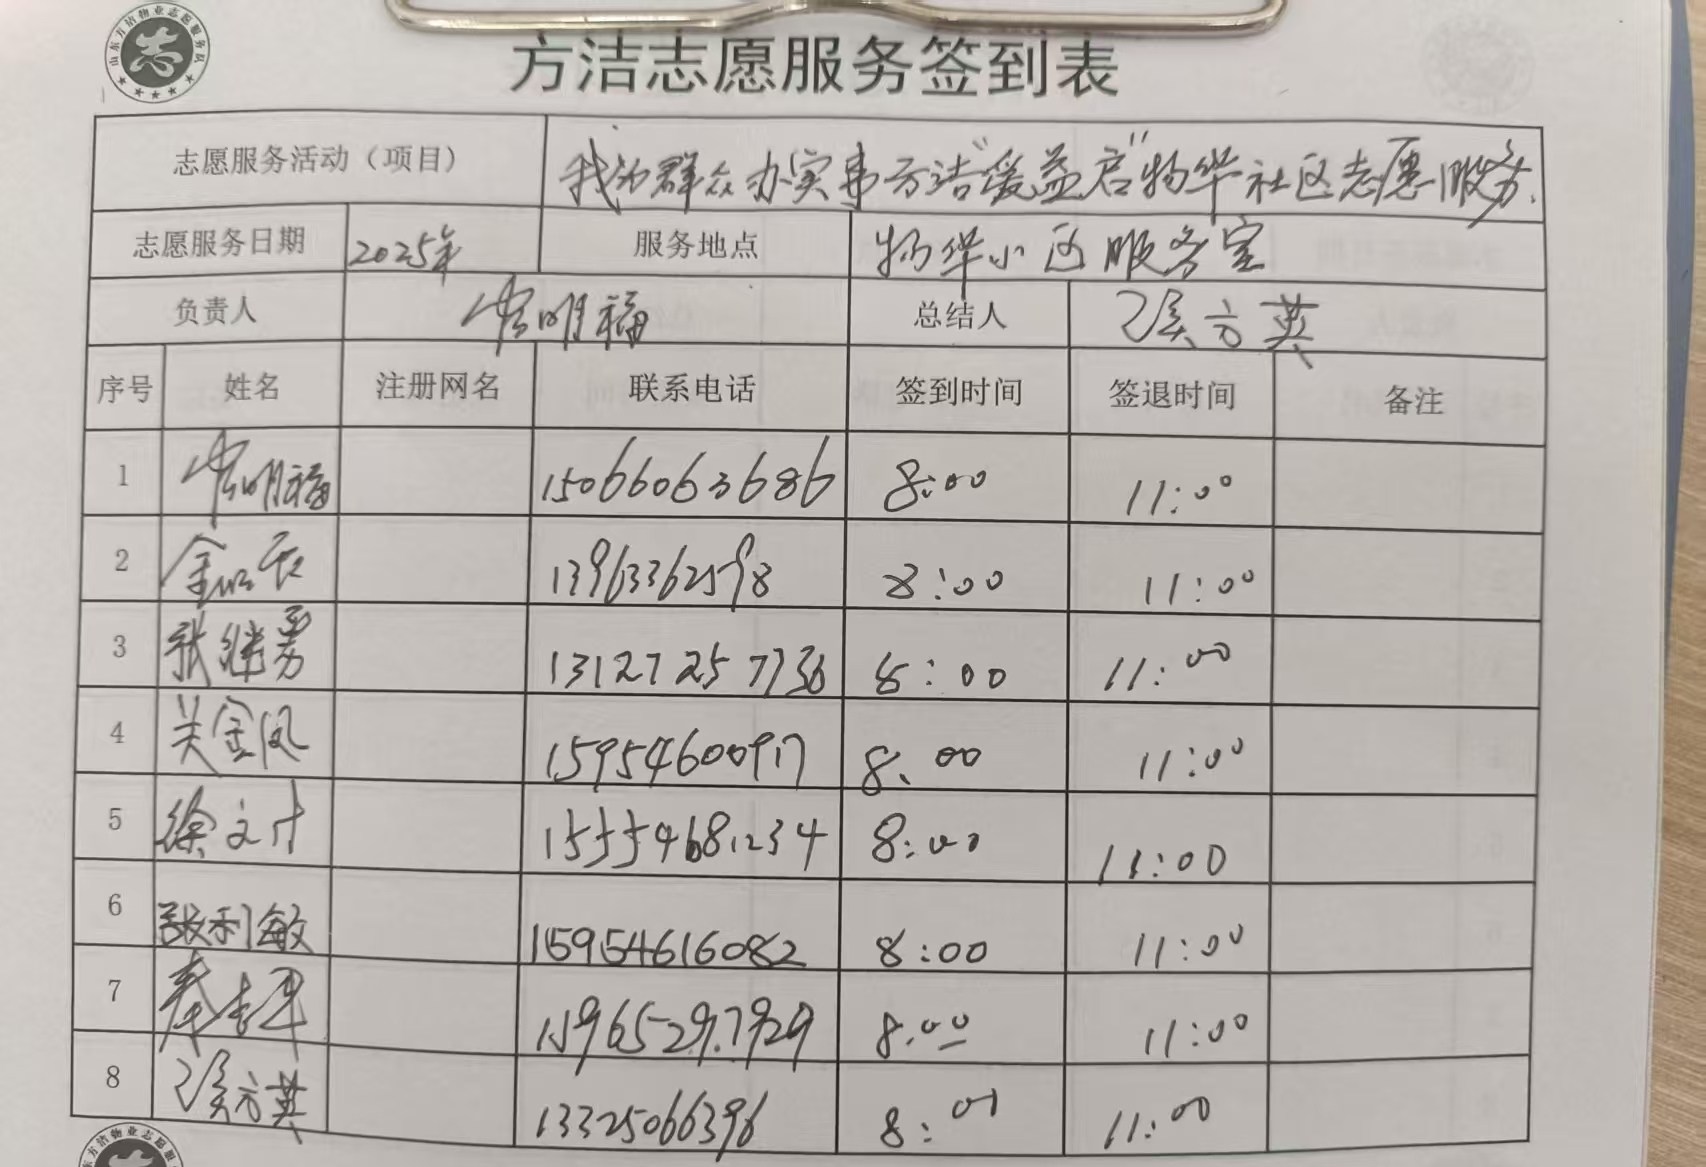 山东方洁物业志愿服务队
志
方洁志愿服务签到表
志愿服务活动（项目） 我为群众办实事方洁“爱益启”物华社区志愿服务.
志愿服务日期 2025年 服务地点 物华小区服务室
负责人 明福 总结人 方英
序号 姓名 注册网名 联系电话 签到时间 签退时间 备注
1 明福 15066063686 8:00 11:00
2 金 13963362598 8:00 11:00
3 张继勇 13127257736 8:00 11:00
4 关金凤 15954600917 8:00 11:00
5 徐文 15554681234 8:00 11:00
6 利敏 15954616082 8:00 11:00
7 秦 15965297929 8:00 11:00
8 方英 13325066396 8:00 11:00
东方洁物业志愿服